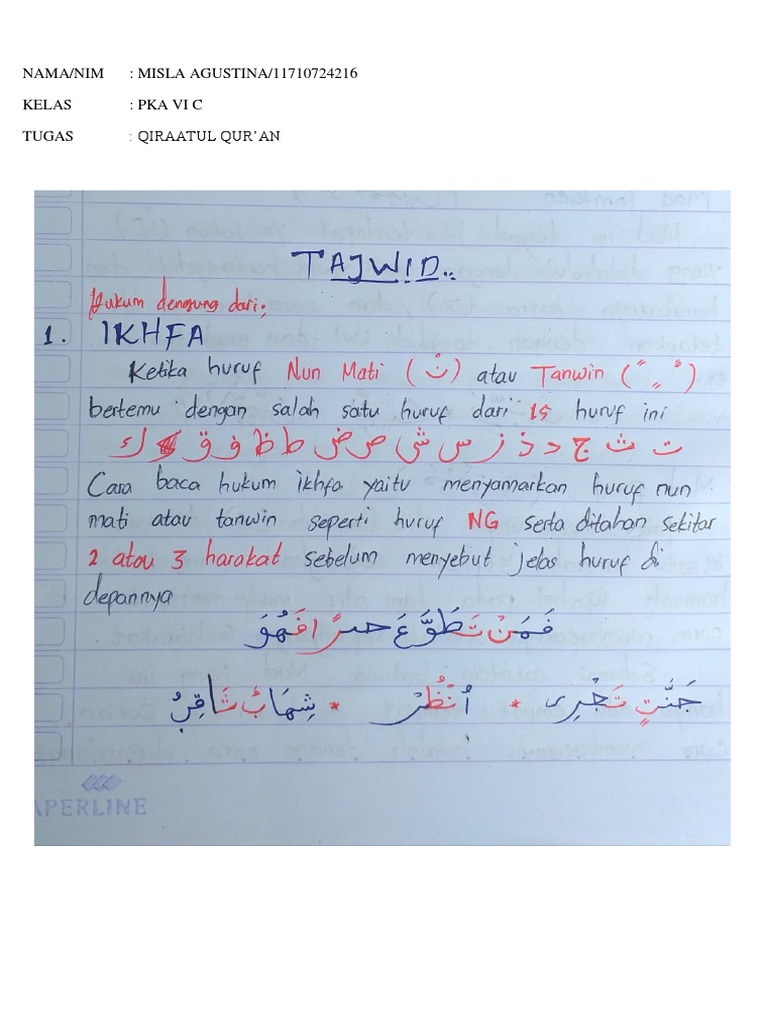 NAMA/NIM : MISLA AGUSTINA/11710724216
KELAS : PKA VI C
TUGAS : QIRAATUL QUR'AN
TAJWID..
Hukum dengung dari;
1. IKHFA
Ketika huruf Nun Mati (نْ) atau Tanwin (ً ٍ ٌ)
bertemu dengan salah satu huruf dari 15 huruf ini
ت ث ج د ذ ز س ش ص ض ط ظ ف ق ك
Cara baca hukum ikhfa yaitu menyamarkan huruf nun
mati atau tanwin seperti huruf NG serta ditahan sekitar
2 atau 3 harakat sebelum menyebut jelas huruf di
depannya
فَمَنْ تَطَوَّعَ خيرًا فَهُوَ
جَنَّتٍ تَجْرِى * اُنْظُرْ * شِهَابٌ ثَاقِبٌ
PAPERLINE